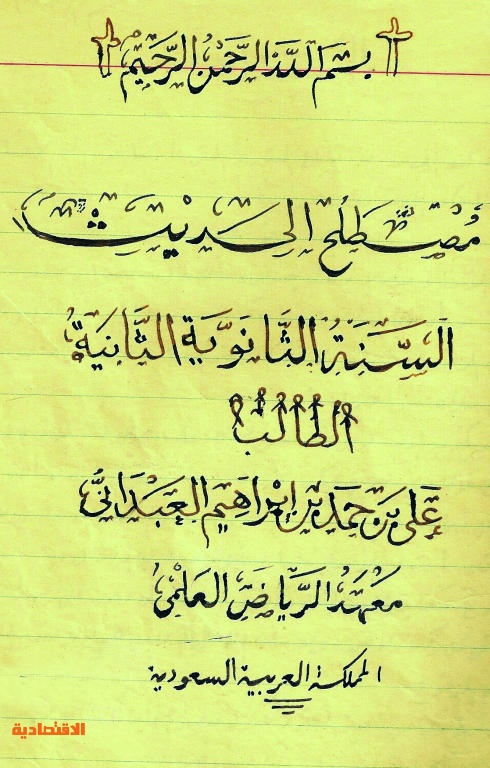 بسم الله الرحمن الرحيم
مُصْطَلَح الحديث
السَّنَةُ الثَّانَوِيَّة الثَّانِيَةُ
الطالب
عَلي بن حَمَد بن إبْرَاهِيم العَبْدَانيُّ
مَعْهَدُ الرِّيَاضِ العِلْمِيُّ
المملكة العربية السعودية
الاقتصادية